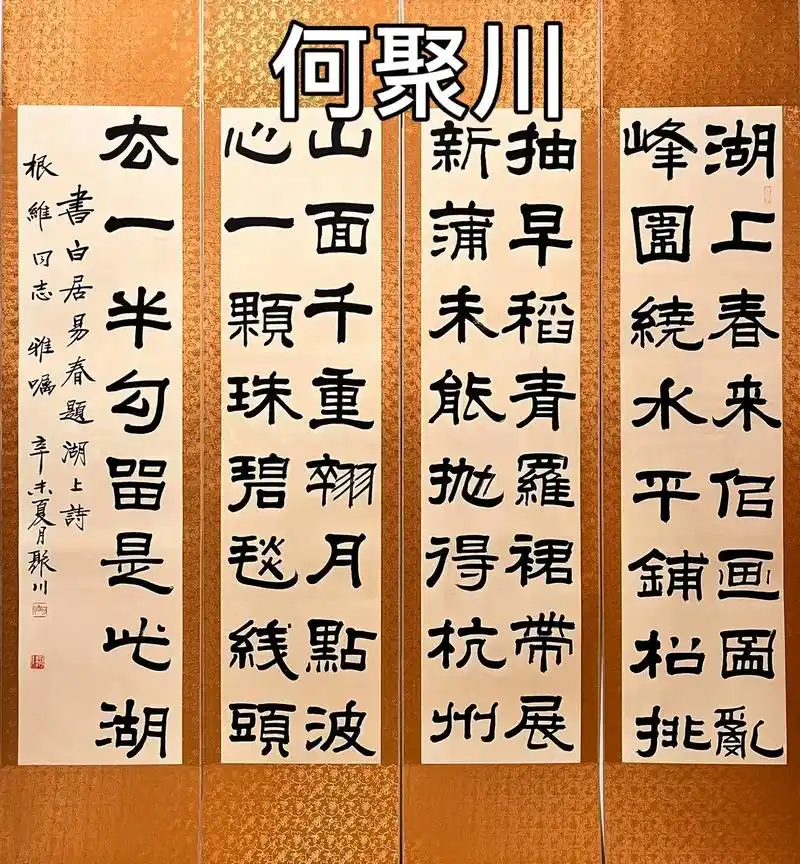 何聚川
湖上春来佀画圖亂
峰圍繞水平鋪松排
抽早稻青羅裙帶展
新蒲未能抛得杭州
山面千重翠月點波
心一顆珠碧毯綫頭
去一半勾留是此湖
書白居易春題湖上詩
根維同志雅嘱 辛未夏月聚川